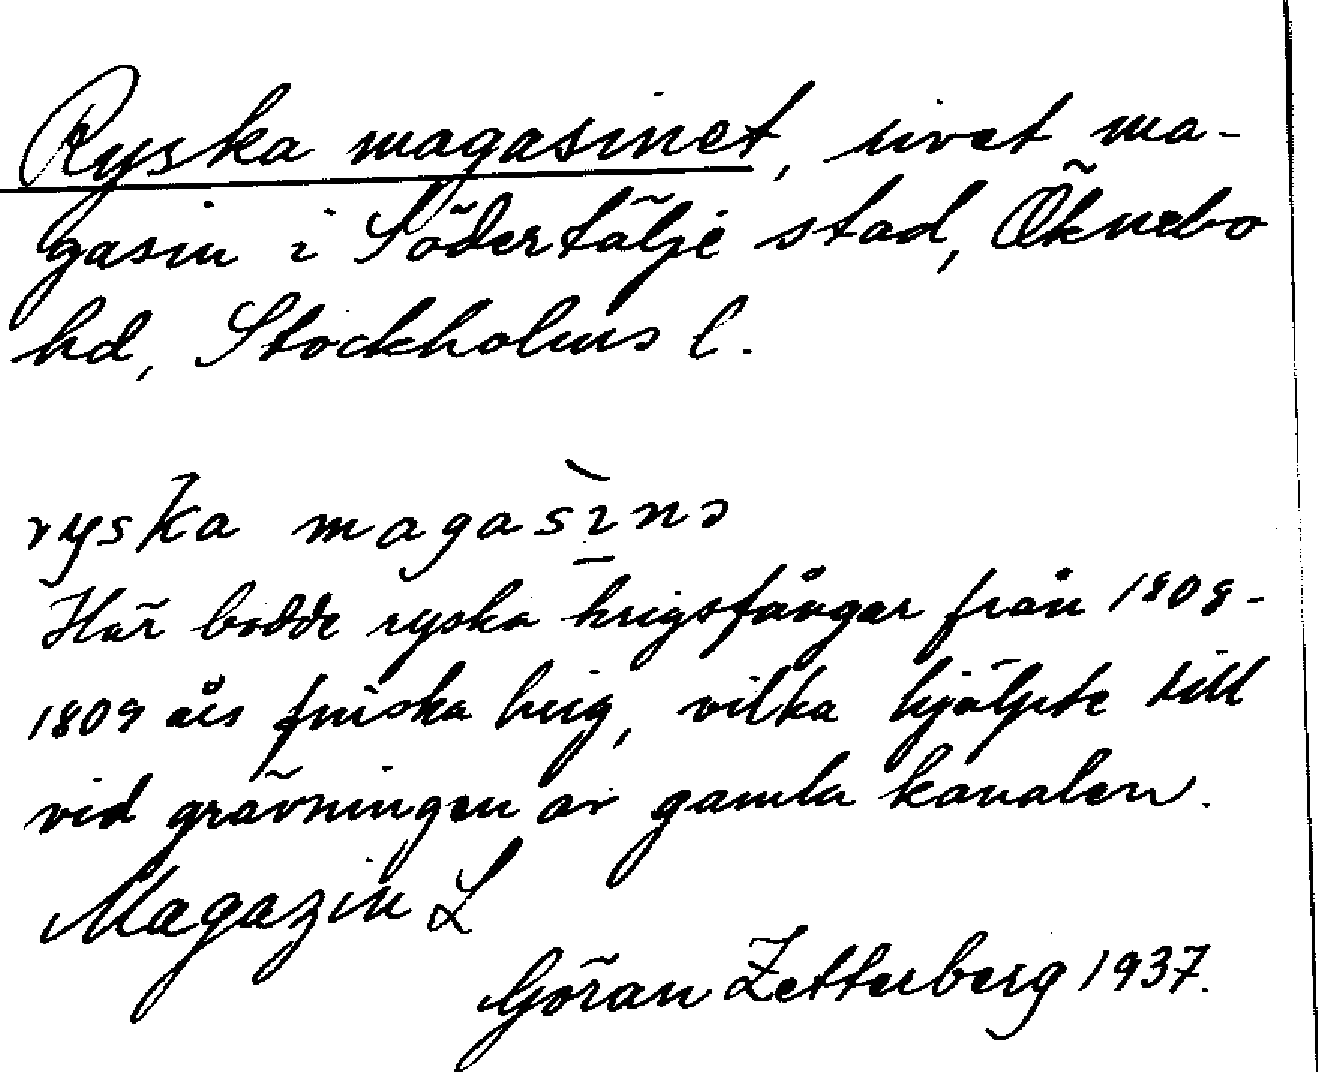 Ryska magasinet, urvet ma-
gasin i Södertälje stad, Öknebo
hd, Stockholms l.
ryska magasìns
Här bodde ryska krigsfångar från 1808-
1809 års finska krig, vilka hjälpte till
vid grävningen av gamla kanalen.
Magazin L
Göran Zetterberg 1937.